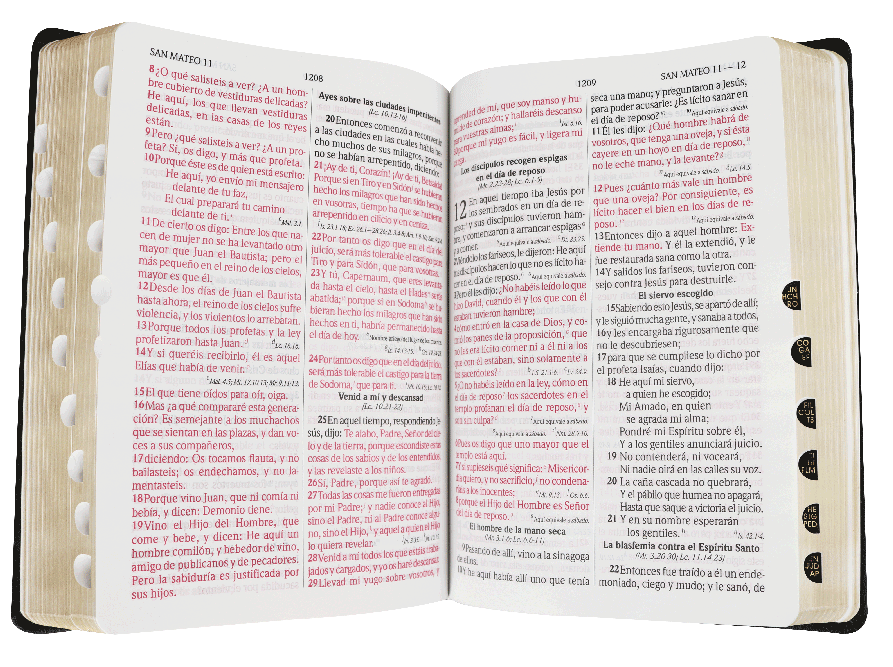 SAN MATEO 11
1208
8¿O qué salisteis a ver? ¿A un hom-
bre cubierto de vestiduras delicadas?
He aquí, los que llevan vestiduras
delicadas, en las casas de los reyes
están.
9Pero ¿qué salisteis a ver? ¿A un pro-
feta? Sí, os digo, y más que profeta.
10Porque éste es de quien está escrito:
He aquí, yo envío mi mensajero
delante de tu faz,
El cual preparará tu camino
delante de ti.
Mal. 3.1.
11De cierto os digo: Entre los que na-
cen de mujer no se ha levantado otro
mayor que Juan el Bautista; pero el
más pequeño en el reino de los cielos,
mayor es que él.
12Desde los días de Juan el Bautista
hasta ahora, el reino de los cielos sufre
violencia, y los violentos lo arrebatan.
13Porque todos los profetas y la ley
profetizaron hasta Juan.
14Y si queréis recibirlo, él es aquel
Elías que había de venir.
15El que tiene oídos para oír, oiga.
16Mas ¿a qué compararé esta genera-
ción? Es semejante a los muchachos
que se sientan en las plazas, y dan vo-
ces a sus compañeros,
17diciendo: Os tocamos flauta, y no
bailasteis; os endechamos, y no la-
mentasteis.
18Porque vino Juan, que ni comía ni
bebía, y dicen: Demonio tiene.
19Vino el Hijo del Hombre, que
come y bebe, y dicen: He aquí un
hombre comilón, y bebedor de vino,
amigo de publicanos y de pecadores.
Pero la sabiduría es justificada por
sus hijos.
Ayes sobre las ciudades impenitentes
(Lc. 10.13-16)
20Entonces comenzó a reconvenir
a las ciudades en las cuales había he-
cho muchos de sus milagros, porque
no se habían arrepentido, diciendo:
21¡Ay de ti, Corazín! ¡Ay de ti, Betsaida!
Porque si en Tiro y en Sidón se hubieran
hecho los milagros que han sido hechos
en vosotras, tiempo ha que se hubieran
arrepentido en cilicio y en ceniza.
22Por tanto os digo que en el día del
juicio, será más tolerable el castigo para
Tiro y para Sidón, que para vosotras.
23Y tú, Capernaum, que eres levanta-
da hasta el cielo, hasta el Hades serás
abatida; porque si en Sodoma se hu-
bieran hecho los milagros que han sido
hechos en ti, habría permanecido hasta
el día de hoy.
24Por tanto os digo que en el día del juicio,
será más tolerable el castigo para la tierra
de Sodoma, que para ti.
Venid a mí y descansad
(Lc. 10.21-22)
25En aquel tiempo, respondiendo Je-
sús, dijo: Te alabo, Padre, Señor del cie-
lo y de la tierra, porque escondiste estas
cosas de los sabios y de los entendidos,
y las revelaste a los niños.
26Sí, Padre, porque así te agradó.
27Todas las cosas me fueron entregadas
por mi Padre; y nadie conoce al Hijo,
sino el Padre, ni al Padre conoce algu-
no, sino el Hijo, y aquel a quien el Hijo
lo quiera revelar.
28Venid a mí todos los que estáis traba-
jados y cargados, y yo os haré descansar.
29Llevad mi yugo sobre vosotros, y
1209
SAN MATEO 11 — 12
de mí, que soy manso y hu-
milde de corazón; y hallaréis descanso
para vuestras almas;
porque mi yugo es fácil, y ligera mi
carga.
Los discípulos recogen espigas
en el día de reposo
(Mr. 2.23-28; Lc. 6.1-5)
12 En aquel tiempo iba Jesús por
los sembrados en un día de re-
poso; y sus discípulos tuvieron ham-
bre, y comenzaron a arrancar espigas
y a comer.
Viéndolo los fariseos, le dijeron: He aquí
tus discípulos hacen lo que no es lícito ha-
cer en el día de reposo.
Pero él les dijo: ¿No habéis leído lo que
hizo David, cuando él y los que con él
estaban tuvieron hambre;
cómo entró en la casa de Dios, y co-
mió los panes de la proposición, que
no les era lícito comer ni a él ni a los
que con él estaban, sino solamente a
los sacerdotes?
¿O no habéis leído en la ley, cómo en
el día de reposo los sacerdotes en el
templo profanan el día de reposo, y
son sin culpa?
Pues os digo que uno mayor que el
templo está aquí.
Y si supieseis qué significa: Misericor-
dia quiero, y no sacrificio, no condena-
ríais a los inocentes;
porque el Hijo del Hombre es Señor
del día de reposo.
El hombre de la mano seca
(Mr. 3.1-6; Lc. 6.6-11)
Pasando de allí, vino a la sinagoga
de ellos.
Y he aquí había allí uno que tenía
seca una mano; y preguntaron a Jesús,
para poder acusarle: ¿Es lícito sanar en
el día de reposo?
11Él les dijo: ¿Qué hombre habrá de
vosotros, que tenga una oveja, y si ésta
cayere en un hoyo en día de reposo,
no le eche mano, y la levante?
12Pues ¿cuánto más vale un hombre
que una oveja? Por consiguiente, es
lícito hacer el bien en los días de re-
poso.
13Entonces dijo a aquel hombre: Ex-
tiende tu mano. Y él la extendió, y le
fue restaurada sana como la otra.
14Y salidos los fariseos, tuvieron con-
sejo contra Jesús para destruirle.
El siervo escogido
15Sabiendo esto Jesús, se apartó de allí;
y le siguió mucha gente, y sanaba a todos,
16y les encargaba rigurosamente que
no le descubriesen;
17para que se cumpliese lo dicho por
el profeta Isaías, cuando dijo:
18 He aquí mi siervo,
a quien he escogido;
Mi Amado, en quien
se agrada mi alma;
Pondré mi Espíritu sobre él,
Y a los gentiles anunciará juicio.
19 No contenderá, ni voceará,
Ni nadie oirá en las calles su voz.
20 La caña cascada no quebrará,
Y el pábilo que humea no apagará,
Hasta que saque a victoria el juicio.
21 Y en su nombre esperarán
los gentiles.
Is. 42.1-4.
La blasfemia contra el Espíritu Santo
(Mr. 3.20-30; Lc. 11.14-23)
22Entonces fue traído a él un ende-
moniado, ciego y mudo; y le sanó, de